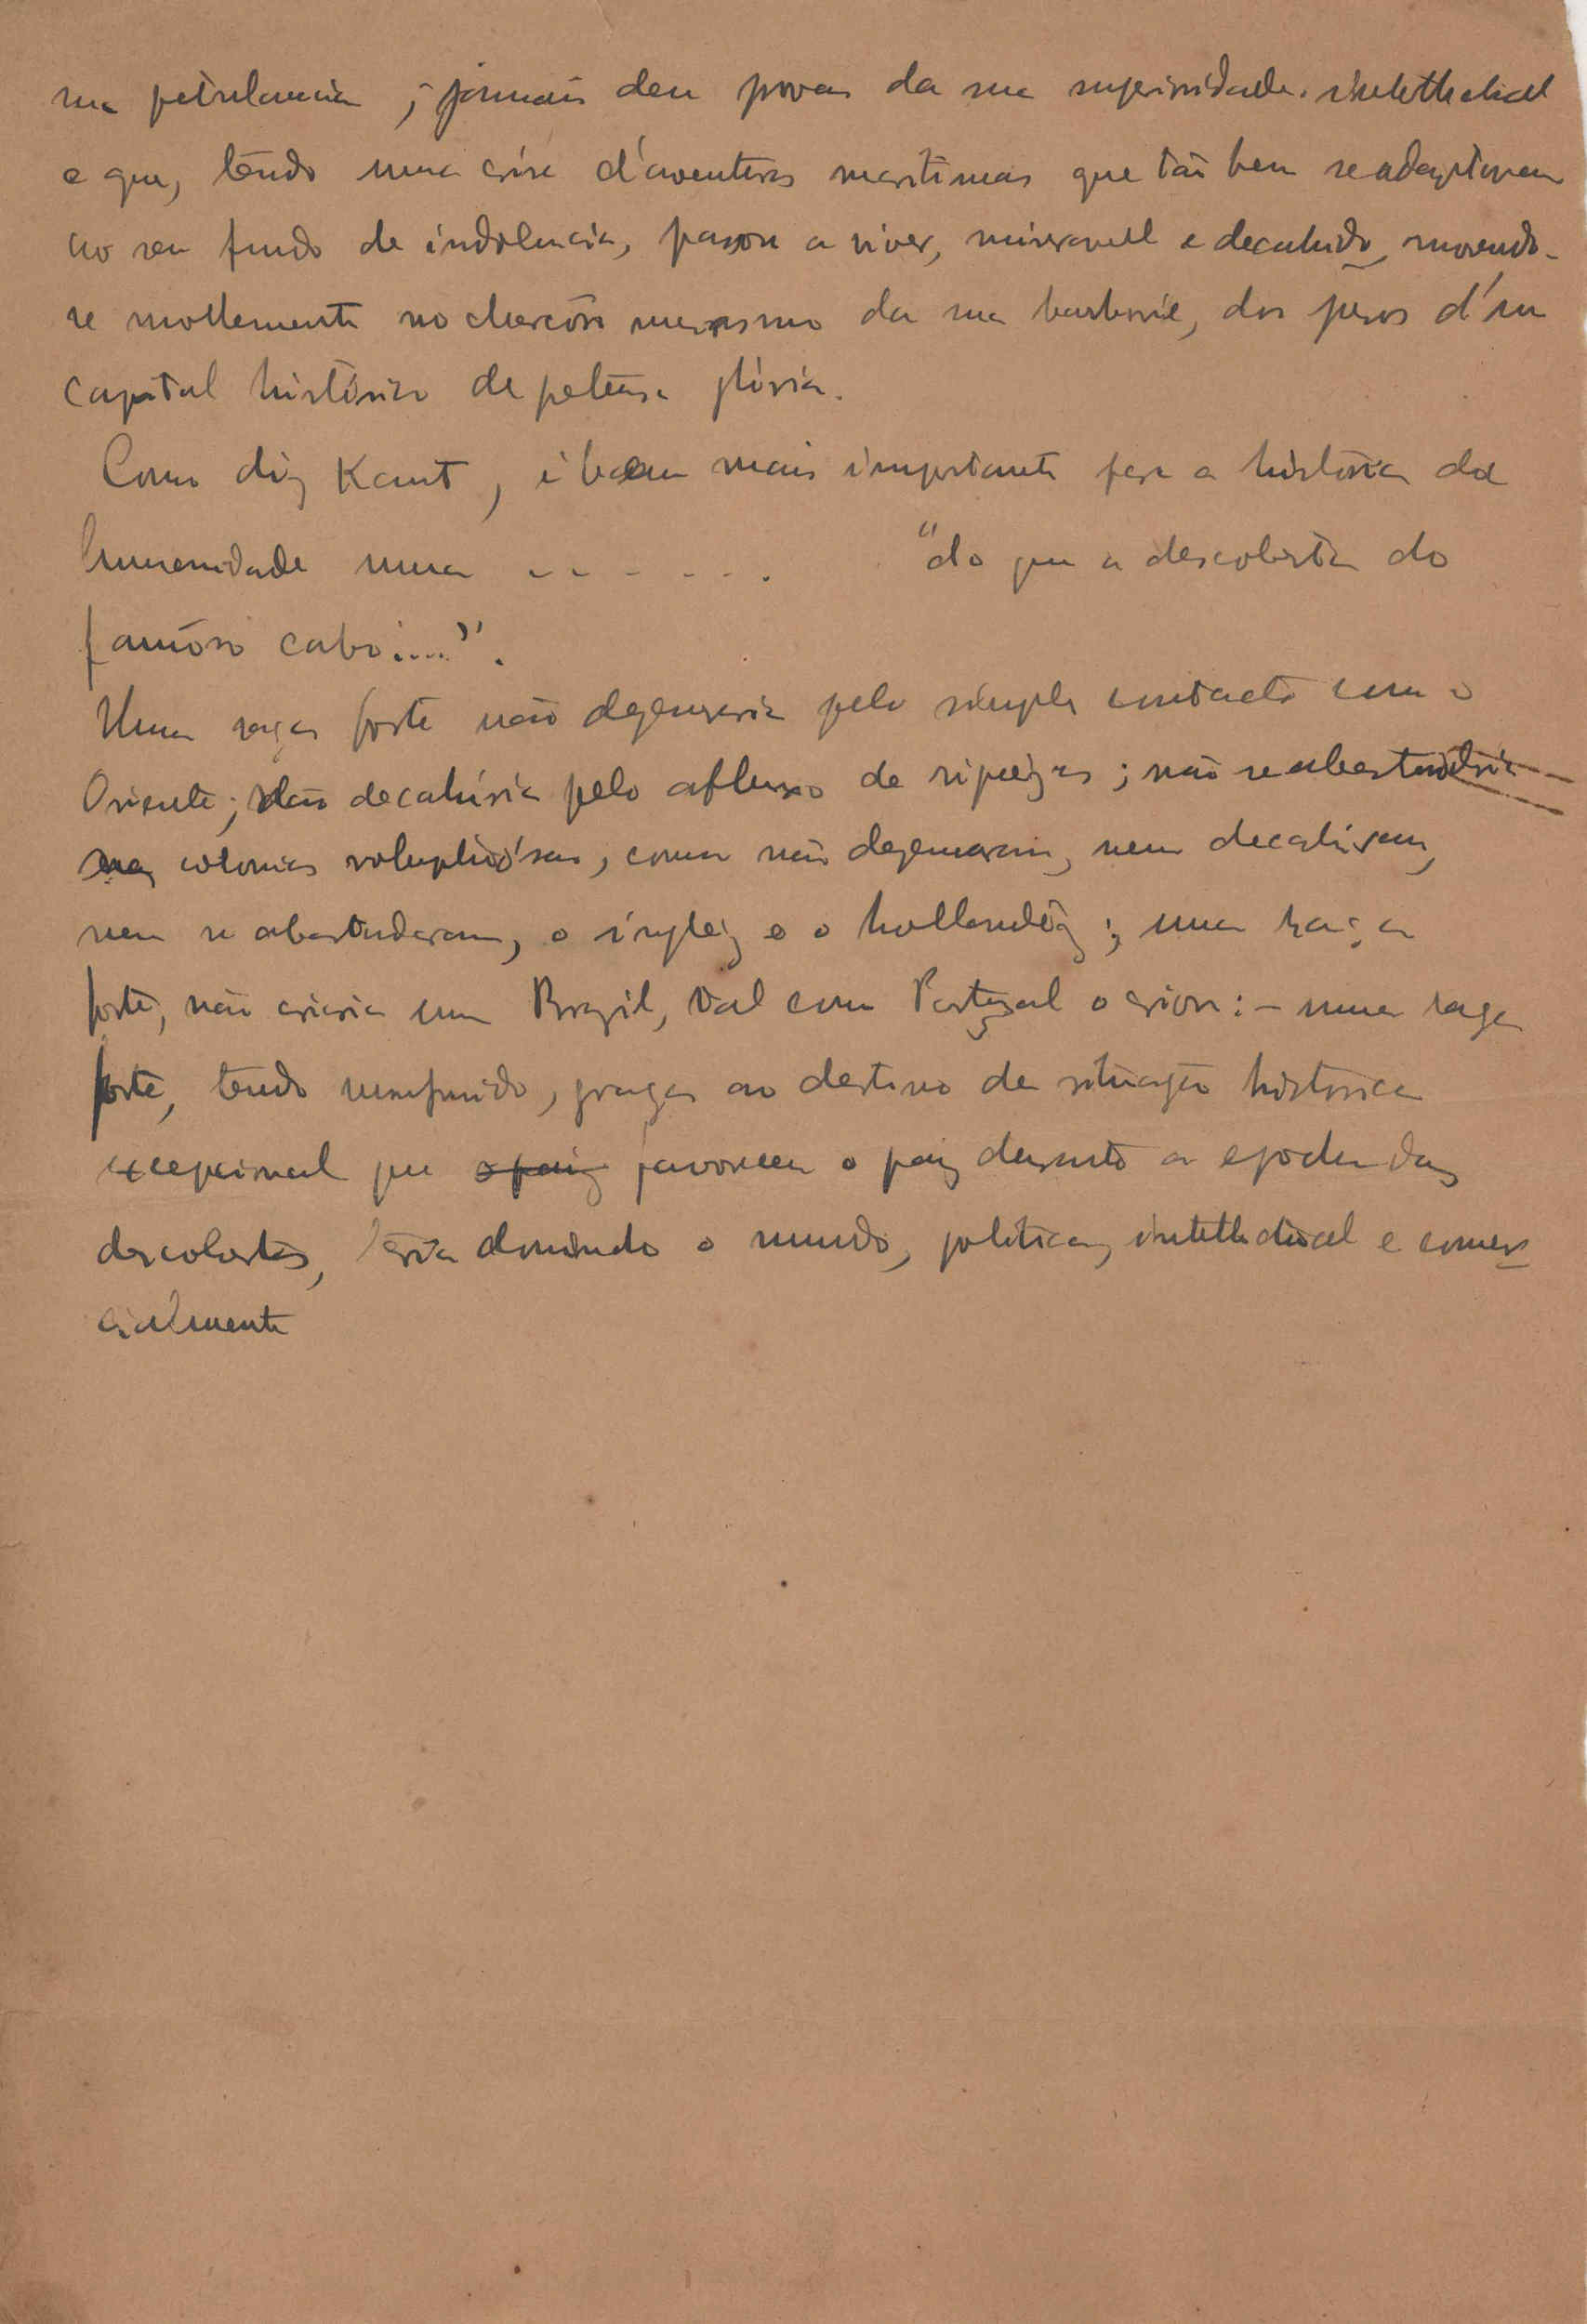 sua petulancia, jamais deu provas da sua superioridade intellectual
e que, tendo uma crise d'aventuras maritimas que tão bem se adaptavam
ao seu fundo de indolencia, passou a viver, miseravel e decahido, movendo-
se mollemente no charcôso marasmo da sua barbarie, dos juros d'um
capital histórico de pretensa glória.
Como diz Kant, é bem mais importante para a história da
humanidade uma - - - - - . "do que a descoberta do
famôso cabo....".
Uma raça forte não degeneraria pelo simples contacto com o
Oriente; não decahiria pelo afluxo de riquezas; não se abastardaria
nas colonias voluptuósas, como não degeneraram, nem decahiram,
nem se abastardaram, o inglez e o hollandêz; uma raça
forte, não criaria um Brazil, tal como Portugal o criou: - uma raça
forte, tendo , graças ao destino da situação histórica
excepcional que o paiz favoreceu o paiz durante a epocha das
descobertas, teria dominado o mundo, politica, intellectual e comer-
cialmente